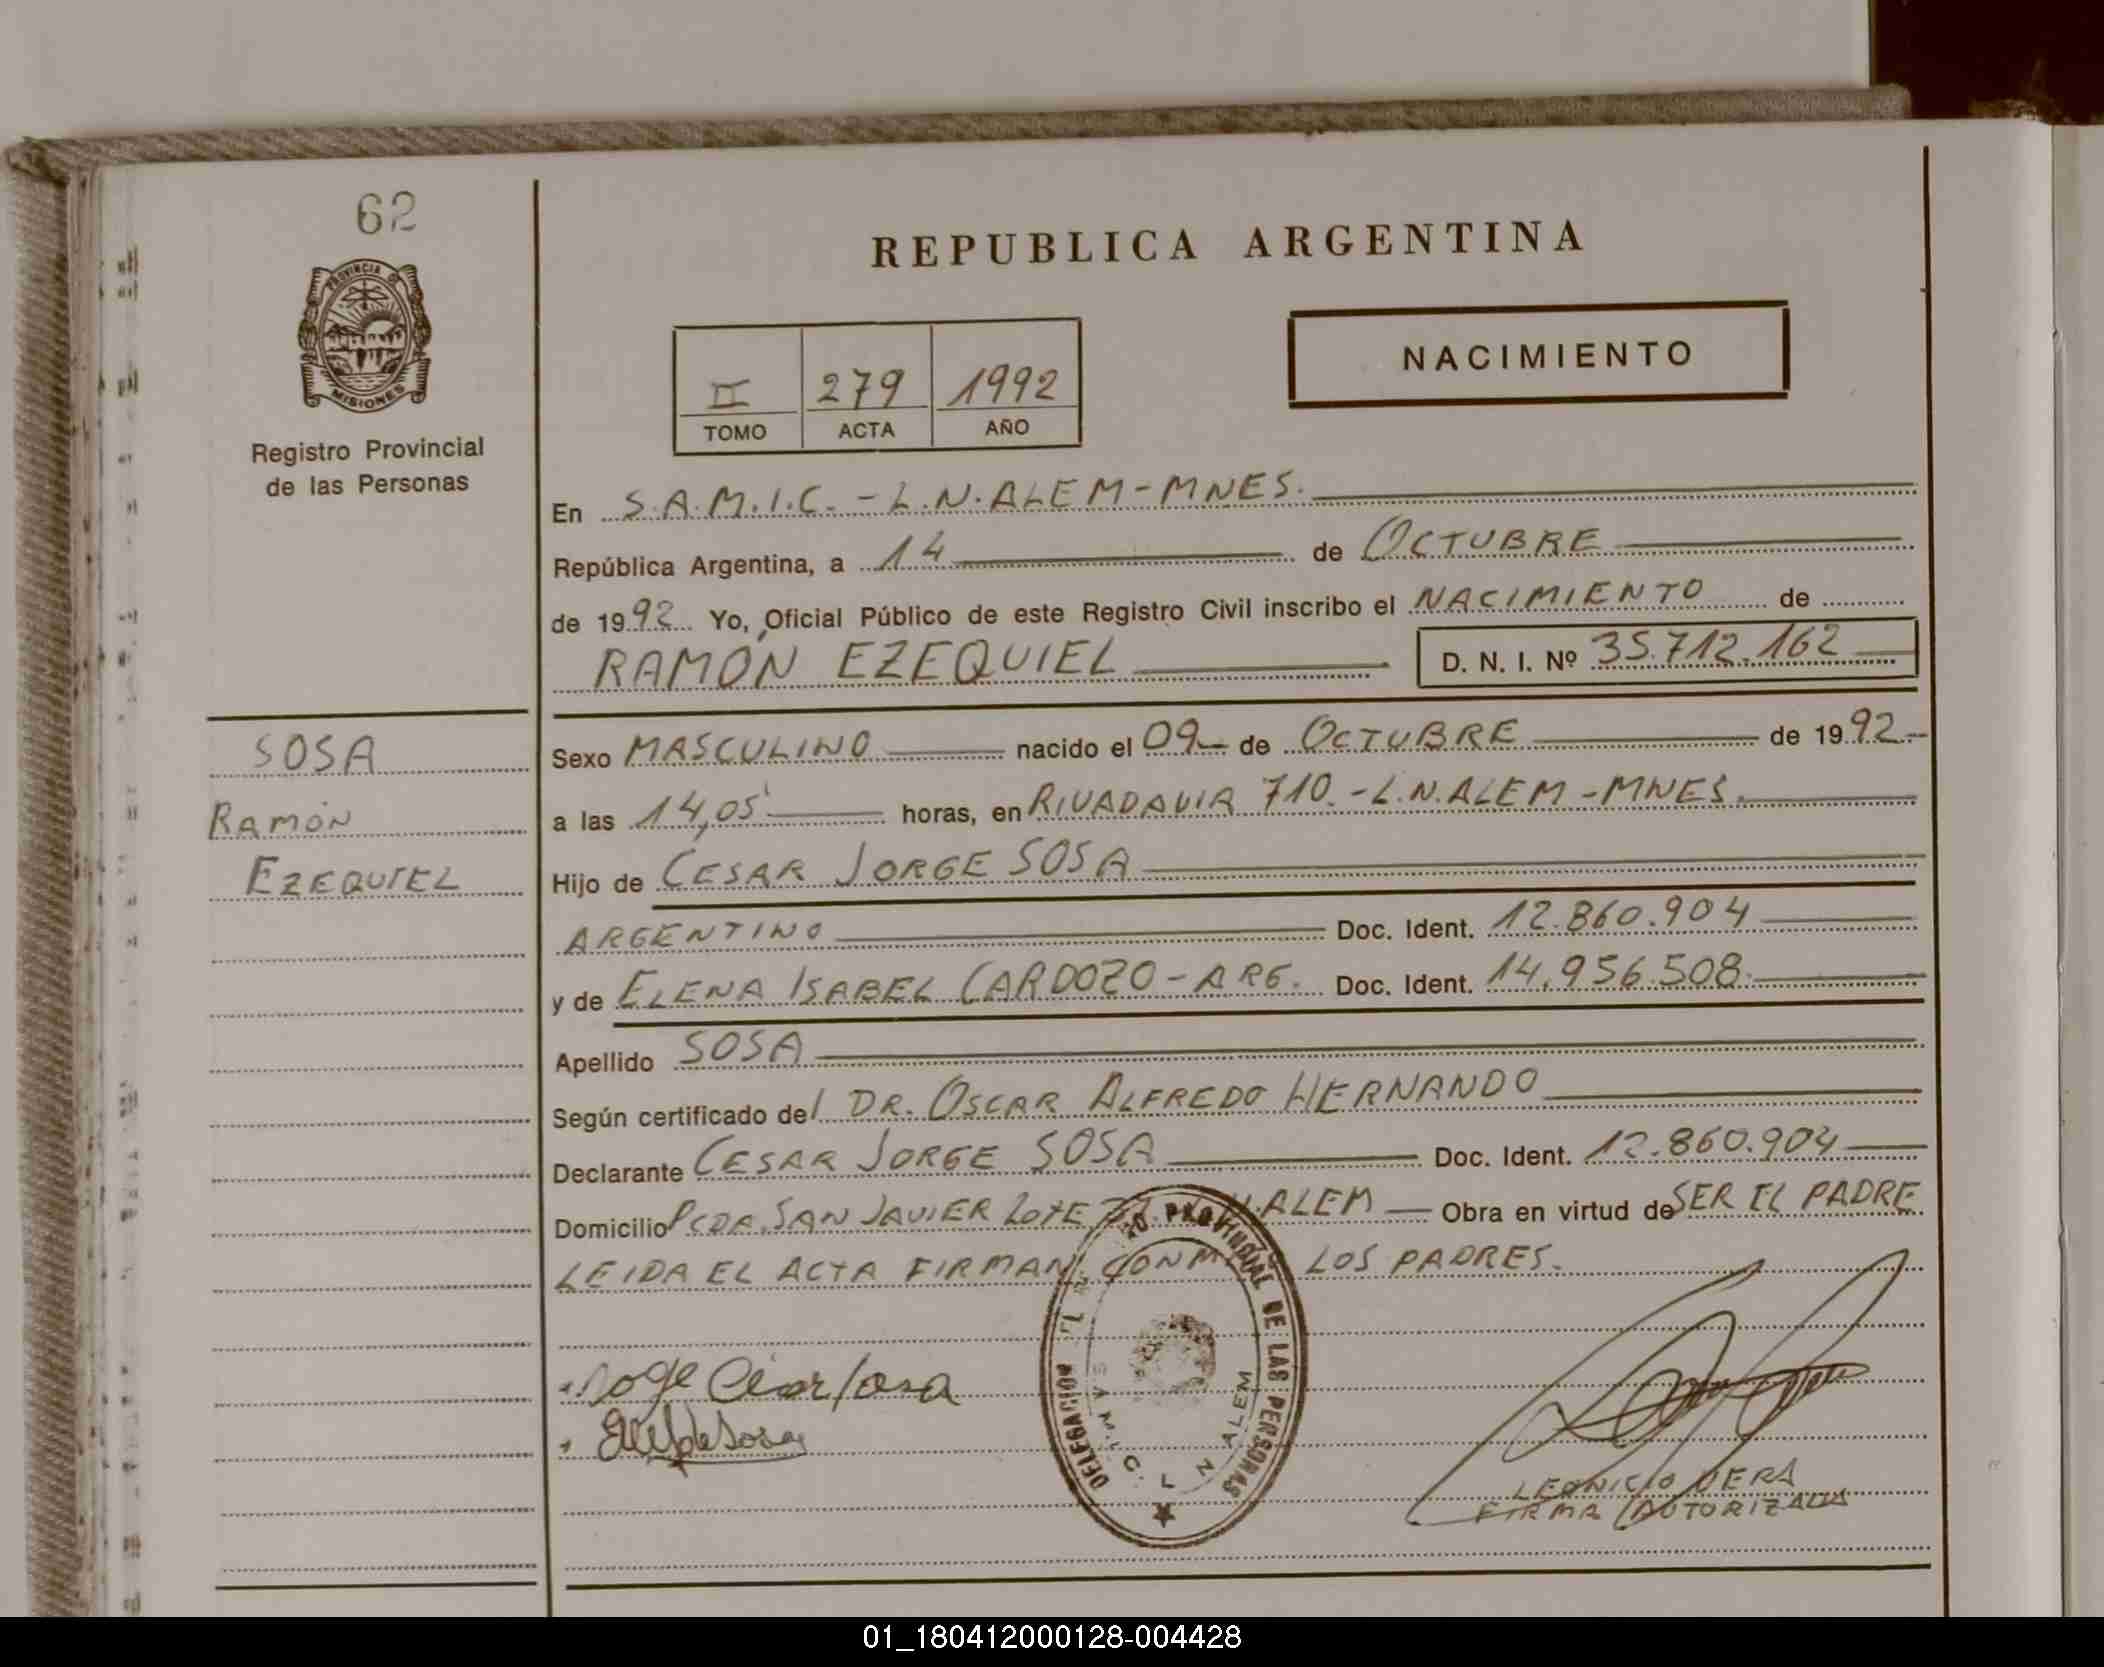 62
PROVINCIA DE
MISIONES
Registro Provincial
de las Personas
SOSA
RAMÓN
EZEQUIEL
REPUBLICA ARGENTINA
NACIMIENTO
II 279 1992
TOMO ACTA AÑO
En S.A.M.I.C. - L.N. ALEM - MNES.
República Argentina, a 14 de OCTUBRE
de 1992 Yo, Oficial Público de este Registro Civil inscribo el NACIMIENTO de
RAMÓN EZEQUIEL D. N. I. Nº 35.712.162
Sexo MASCULINO nacido el 09 de OCTUBRE de 1992.-
a las 14,05' horas, en RIVADAVIA 710.- L.N. ALEM - MNES.
Hijo de CESAR JORGE SOSA
ARGENTINO Doc. Ident. 12.860.904
y de ELENA ISABEL CARDOZO - ARG. Doc. Ident. 14.956.508.
Apellido SOSA
Según certificado del DR. OSCAR ALFREDO HERNANDO
Declarante CESAR JORGE SOSA Doc. Ident. 12.860.904
Domicilio PCDA. SAN JAVIER LOTE ALEM Obra en virtud de SER EL PADRE
LEIDA EL ACTA FIRMAN CONMIGO LOS PADRES.
DELEGACION DEL PROVINCIAL DE LAS PERSONAS
S.A.M.I.C. L N ALEM
LEONICIO VERA
FIRMA AUTORIZADA
01_180412000128-004428